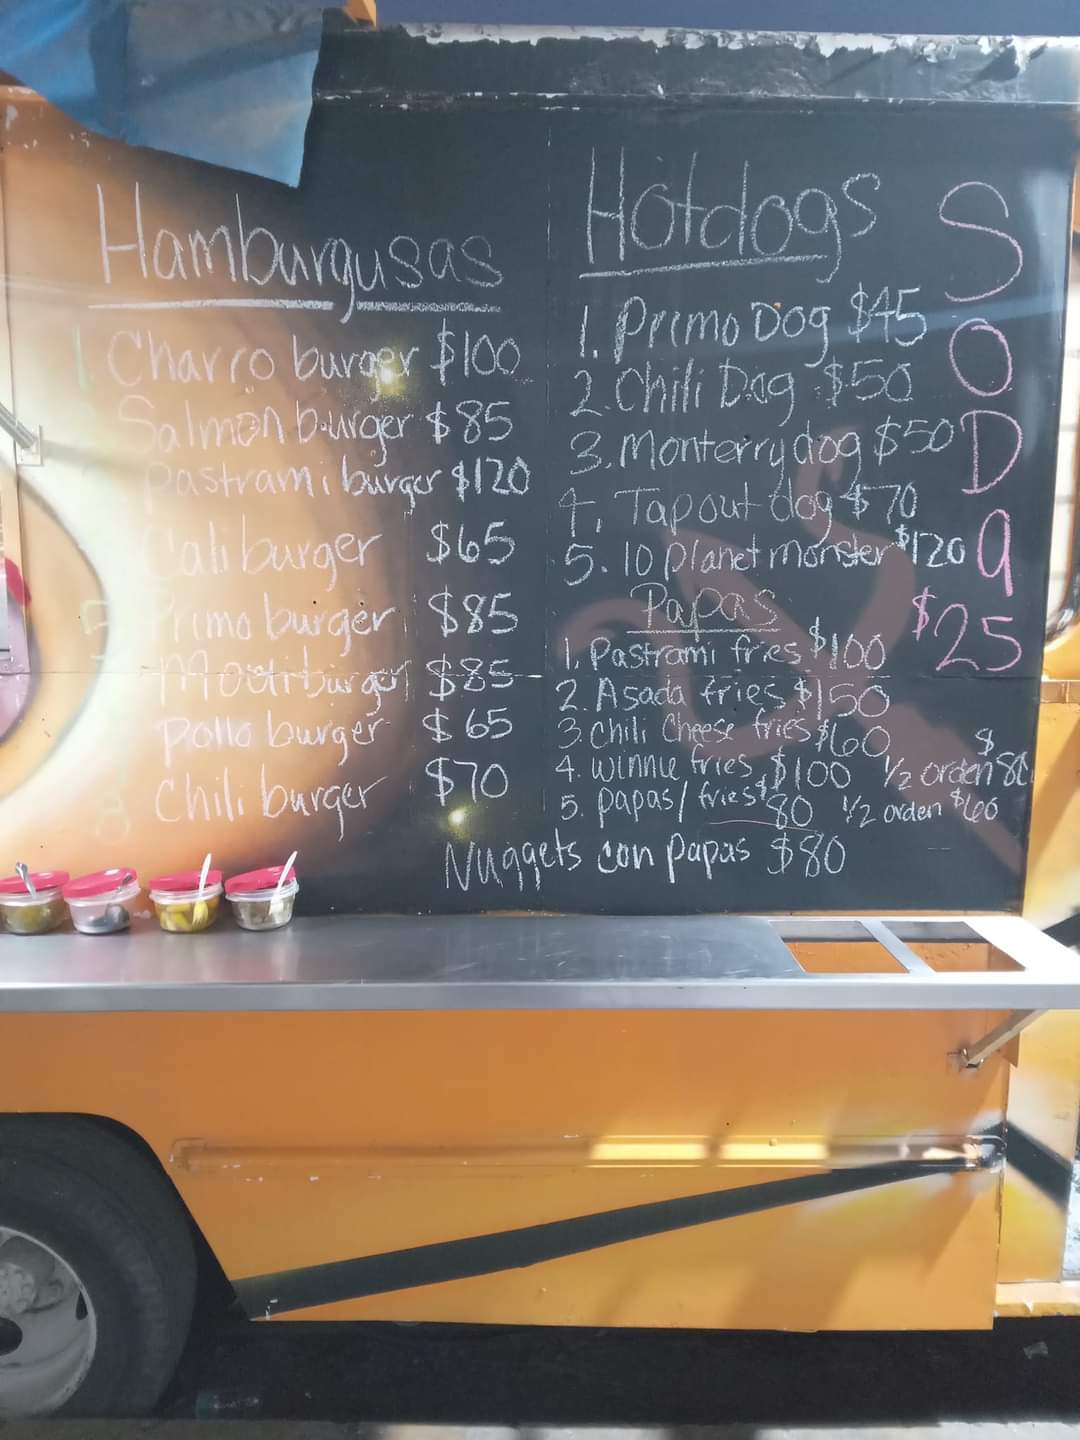 Hamburgusas
1. Charro burger $100
Salmon burger $85
Pastrami burger $120
Cali burger $65
Primo burger $85
burger $85
pollo burger $65
Chili burger $70
Hotdogs
1. Primo Dog $45
2. Chili Dog $50
3. Monterry dog $50
4. Tapout dog $70
5. 10 planet monster $120
Papas
1. Pastrami fries $100
2. Asada fries $150
3. Chili Cheese fries $160
4. winnie fries $100 1/2 orden $80
5. papas/fries $80 1/2 orden $60
Nuggets con papas $80
SODa
$25